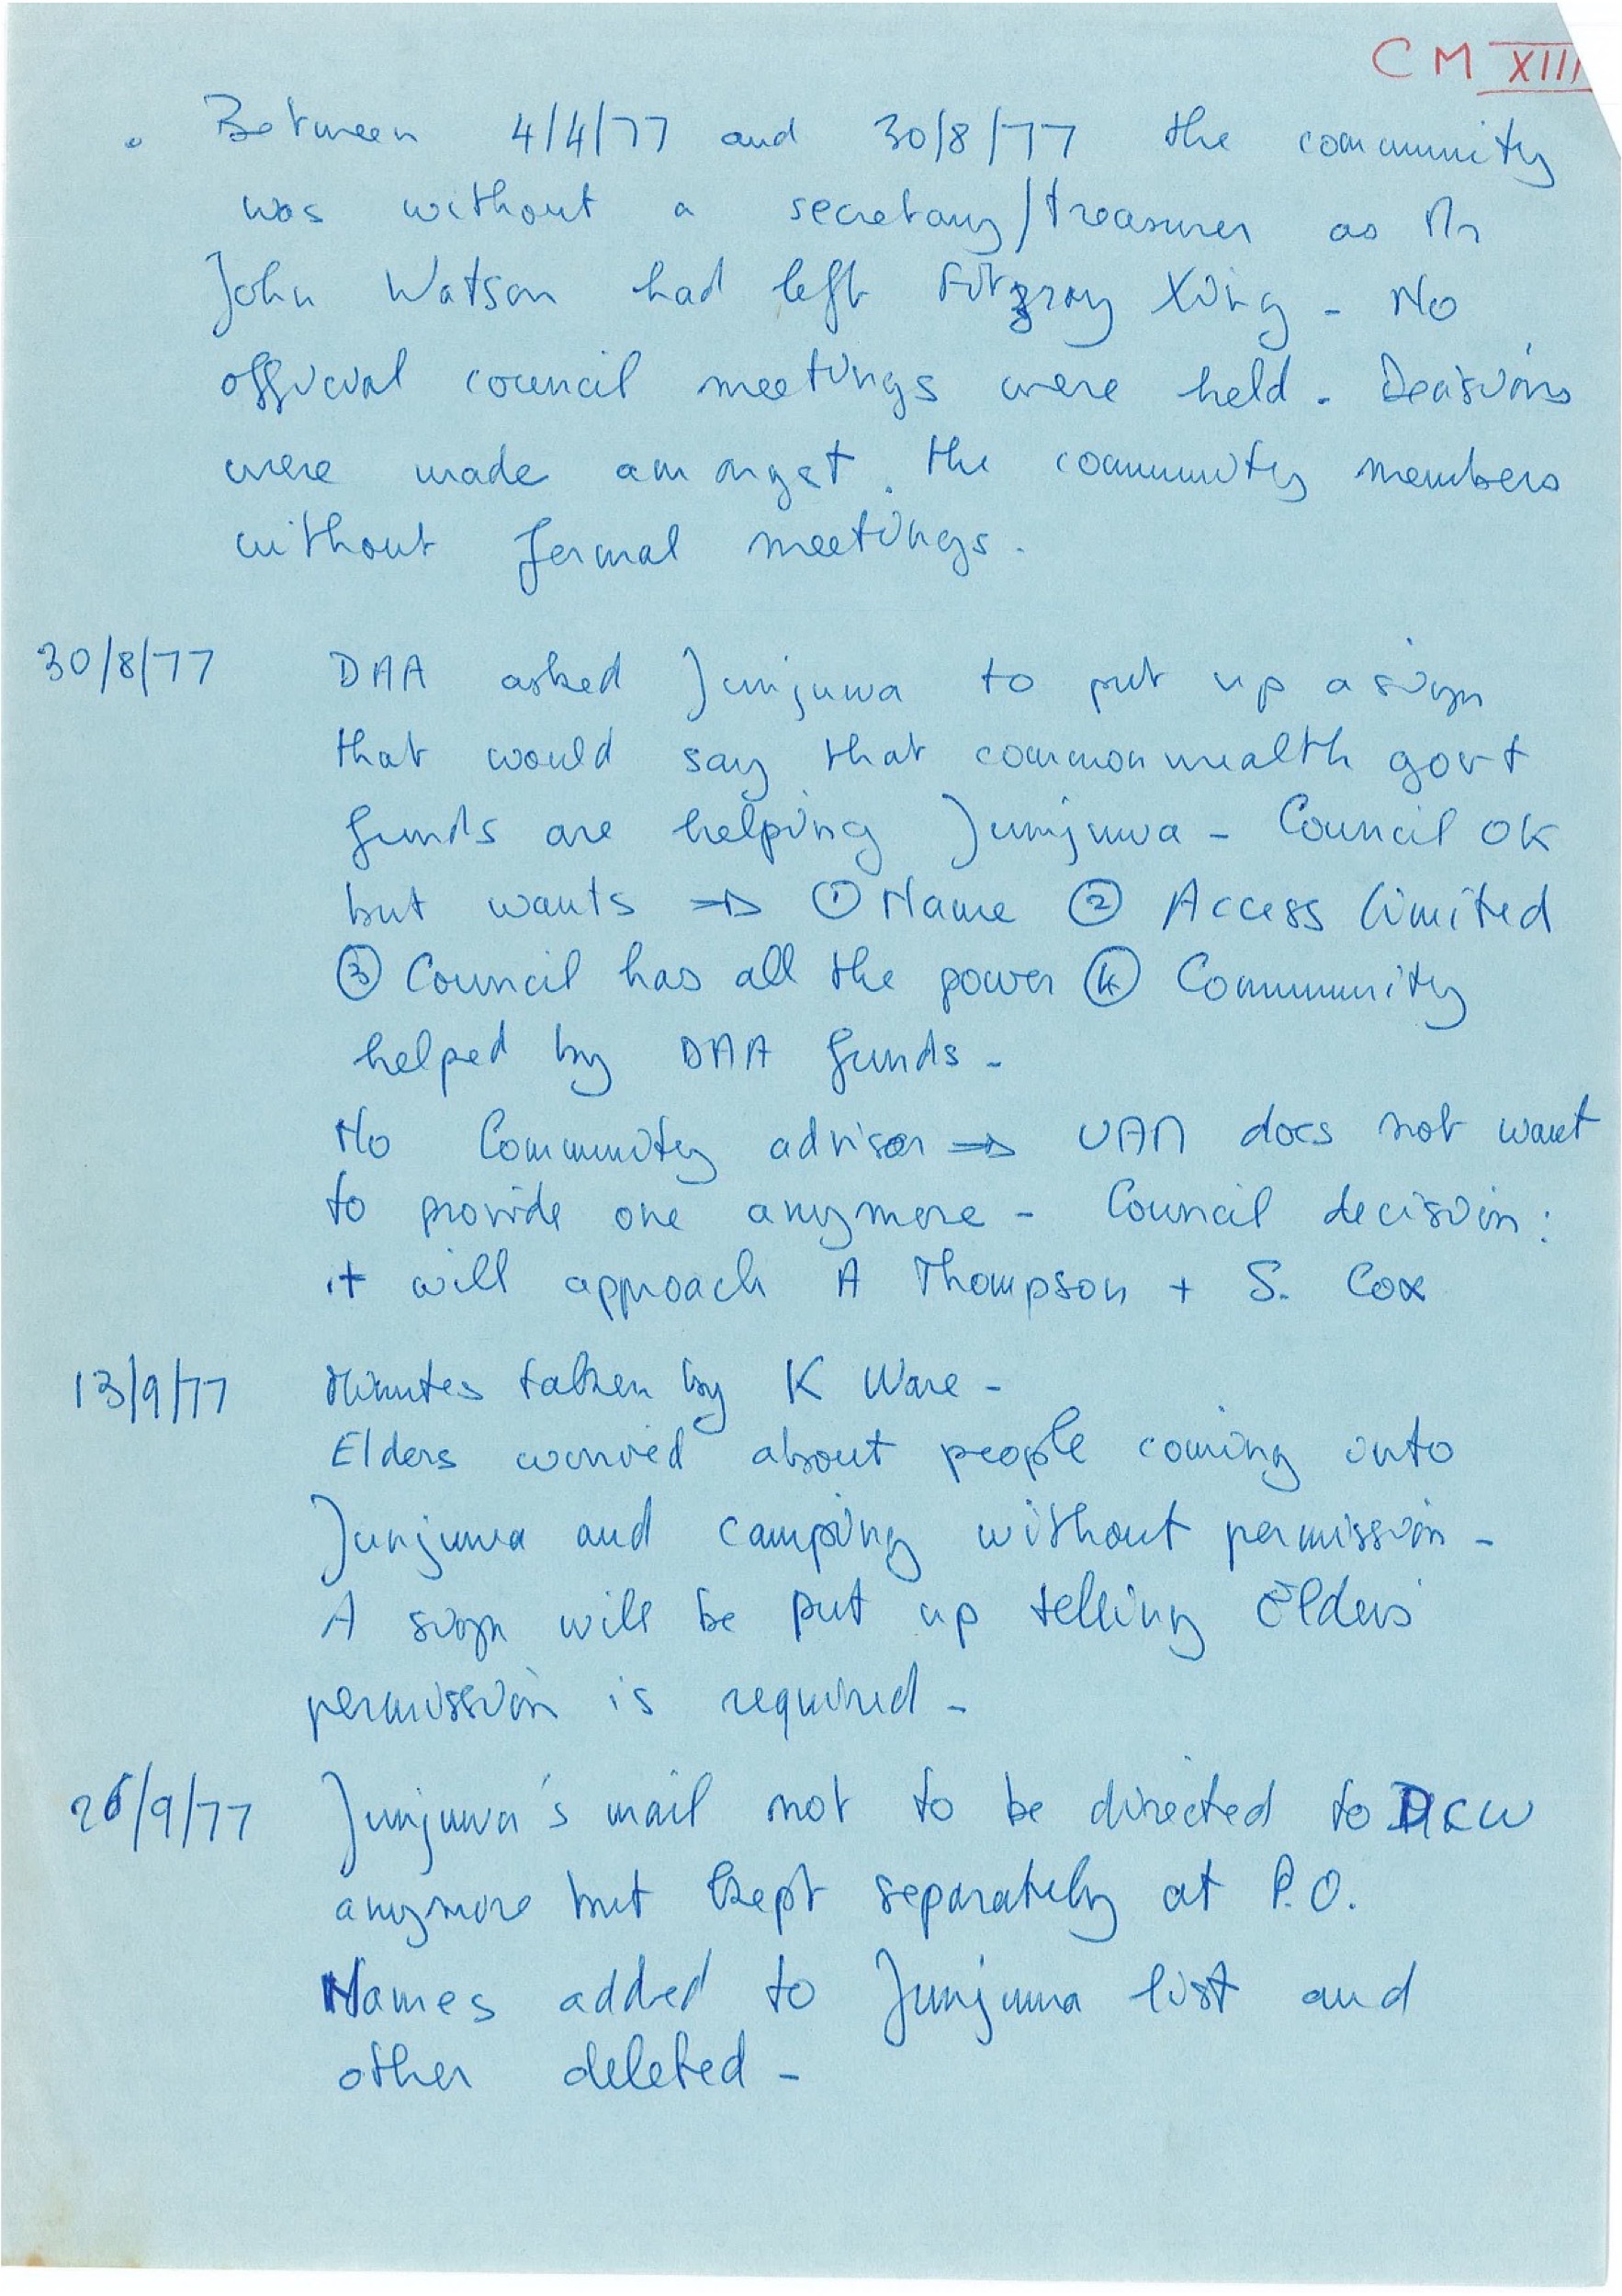 CM XIII
. Between 4/4/77 and 30/8/77 the community
was without a secretary/treasurer as Mr
John Watson had left Fitzroy Xing - No
official council meetings were held. Decisions
were made amongst the community members
without formal meetings.
30/8/77 DAA asked Junjuwa to put up a sign
that would say that commonwealth govt
funds are helping Junjuwa - Council OK
but wants ⇒ ① Name ② Access limited
③ Council has all the power ④ Community
helped by DAA funds -
No Community advisor ⇒ UAM does not want
to provide one anymore - Council decision:
it will approach A Thompson + S. Cox
13/9/77 Minutes taken by K Ware -
Elders worried about people coming into
Junjuwa and camping without permission -
A sign will be put up telling Elders'
permission is required -
26/9/77 Junjuwa's mail not to be directed to DCW
anymore but kept separately at P.O.
Names added to Junjuwa list and
other deleted -